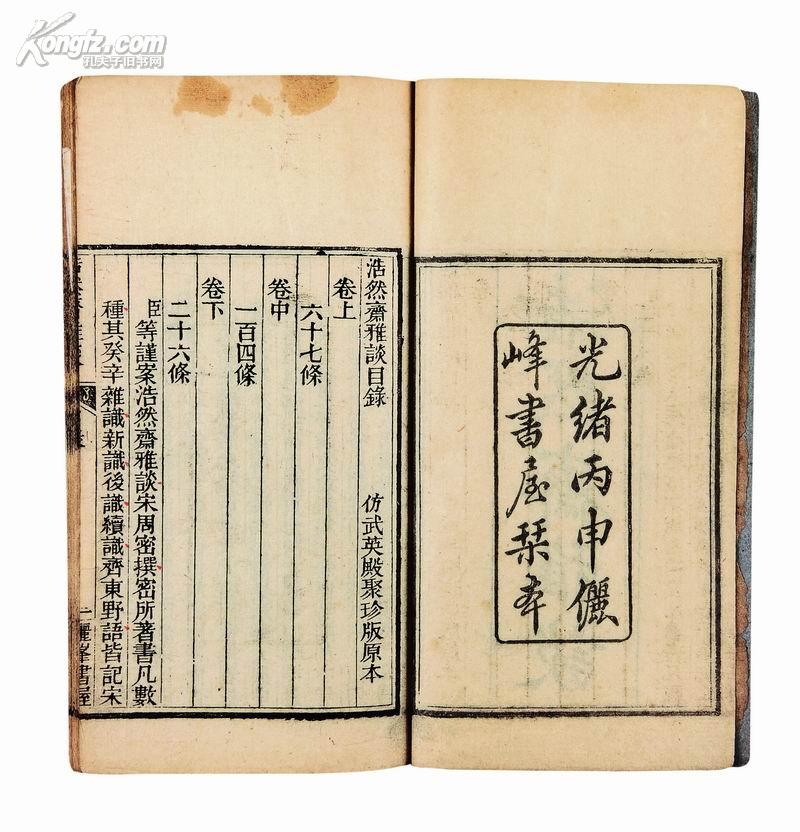 Kongfz.com
孔夫子旧书网
光緒丙申儷
峰書屋栞本
浩然齋雅談目錄
仿武英殿聚珍版原本
卷上
六十七條
卷中
一百四條
卷下
二十六條
臣等謹案浩然齋雅談宋周密撰密所著書凡數
種其癸辛雜識新識後識續識齊東野語皆記宋
儷峯書屋